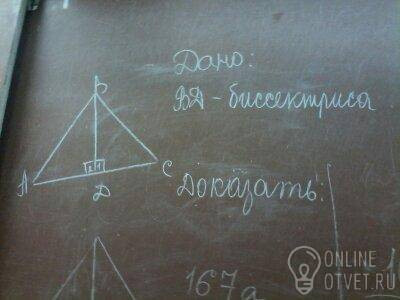 Дано:
ВД - биссектриса
В
2 1
А
Д
С
Доказать:
167а
ONLINE
OTVET.RU